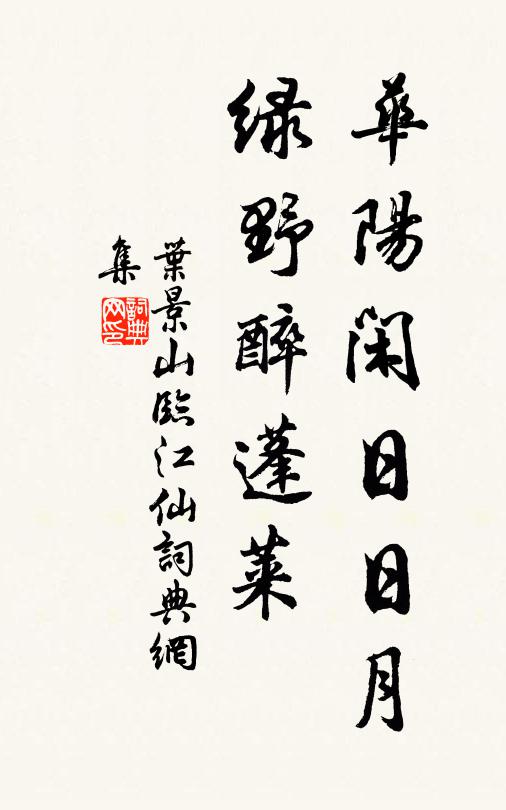 華陽閑日日月
緑野醉蓬萊
葉景山臨江仙詞典網
集
詞典
网印